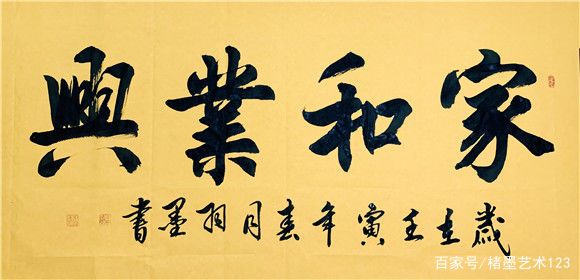 家和業興
歲在壬寅年春月羽墨書
百家号/楮墨艺术123